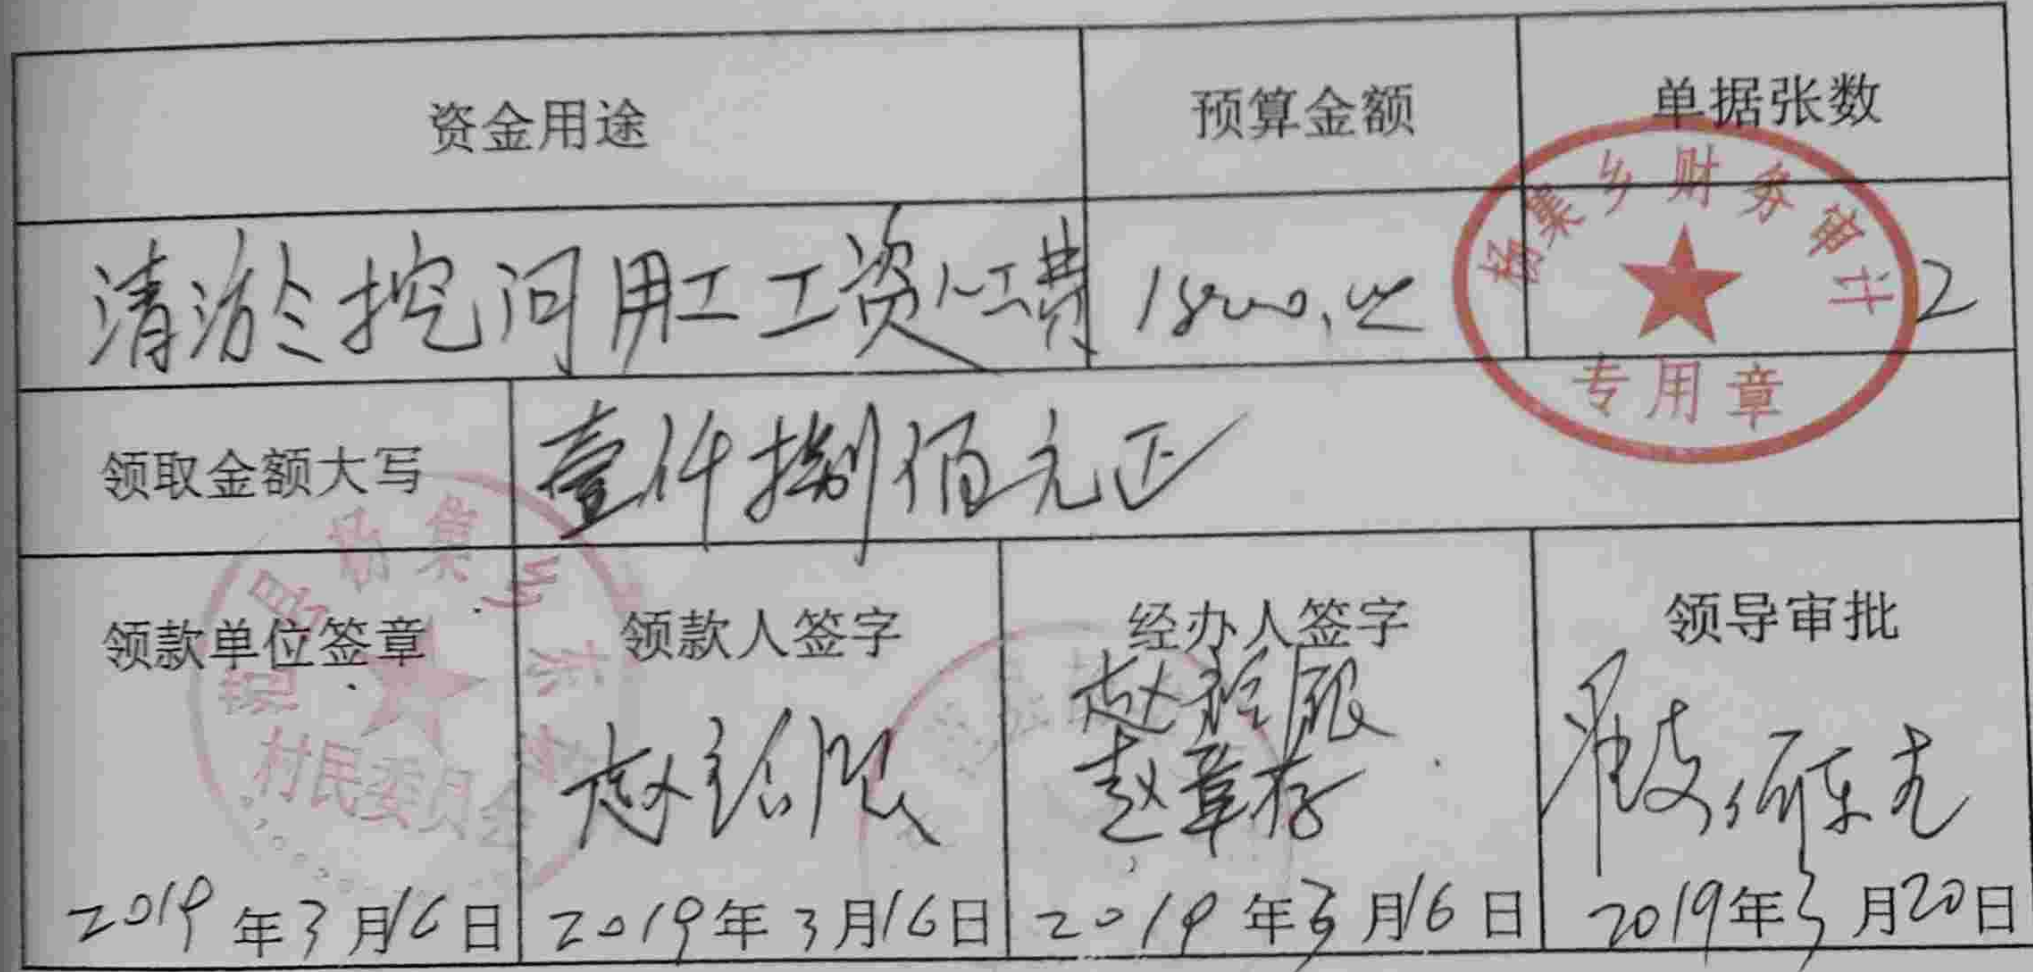 资金用途 预算金额 单据张数
清淤挖河用工工资人工费 1800.00 2
杨集乡财务审计
专用章
领取金额大写 壹仟捌佰元正
领款单位签章 领款人签字 经办人签字 领导审批
杨集乡东
村民委员会
赵章存
2019年3月16日 2019年3月16日 2019年3月16日 2019年3月20日